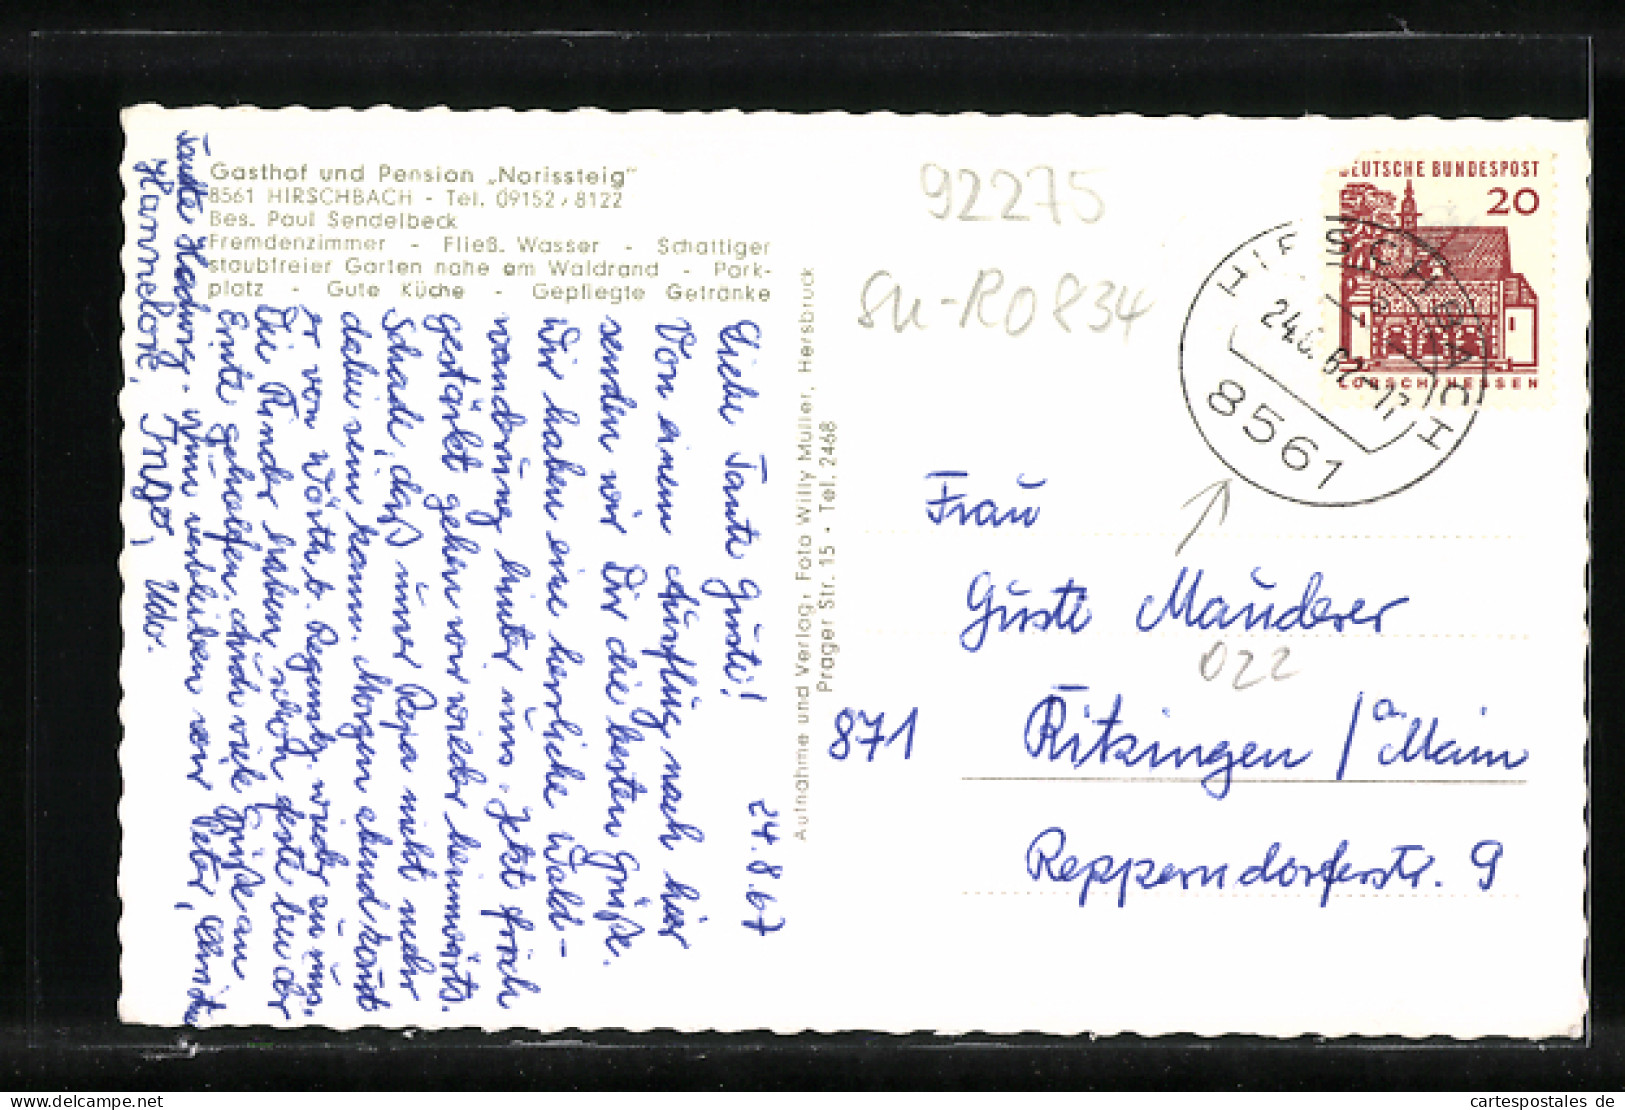 Gasthof und Pension „Norissteig"
8561 HIRSCHBACH - Tel. 09152/8122
Bes. Paul Sendelbeck
Fremdenzimmer - Fließ. Wasser - Schattiger
staubfreier Garten nahe am Waldrand - Park-
platz - Gute Küche - Gepflegte Getränke
24.8.67
Liebe Tante Guste!
Von einem Ausflug nach hier
senden wir Dir die besten Grüße.
Wir haben eine herrliche Wald-
wanderung hinter uns. Jetzt frisch
gestärkt gehen wir wieder heimwärts.
Schade, daß unser Repa nicht mehr
dabei sein kann. Morgen abend kommt
er von Wörth b. Regensbg. wieder zu uns.
Die Kinder haben schon feste bei der
Ernte geholfen. Auch viele Grüße an
Tante Hedwig. Nun verbleiben wir Peter,
Hannelore, Ingo, Udo.
Aufnahme und Verlag: Foto Willy Müller, Hersbruck
Prager Str. 15 - Tel. 2468
92275
Su-R0834
DEUTSCHE BUNDESPOST
20
LORSCH/HESSEN
HIRSCHBACH
8561
Frau
Guste Mauderer
022
871 Kitzingen / a Main
Repperndorferstr. 9
cartespostales de